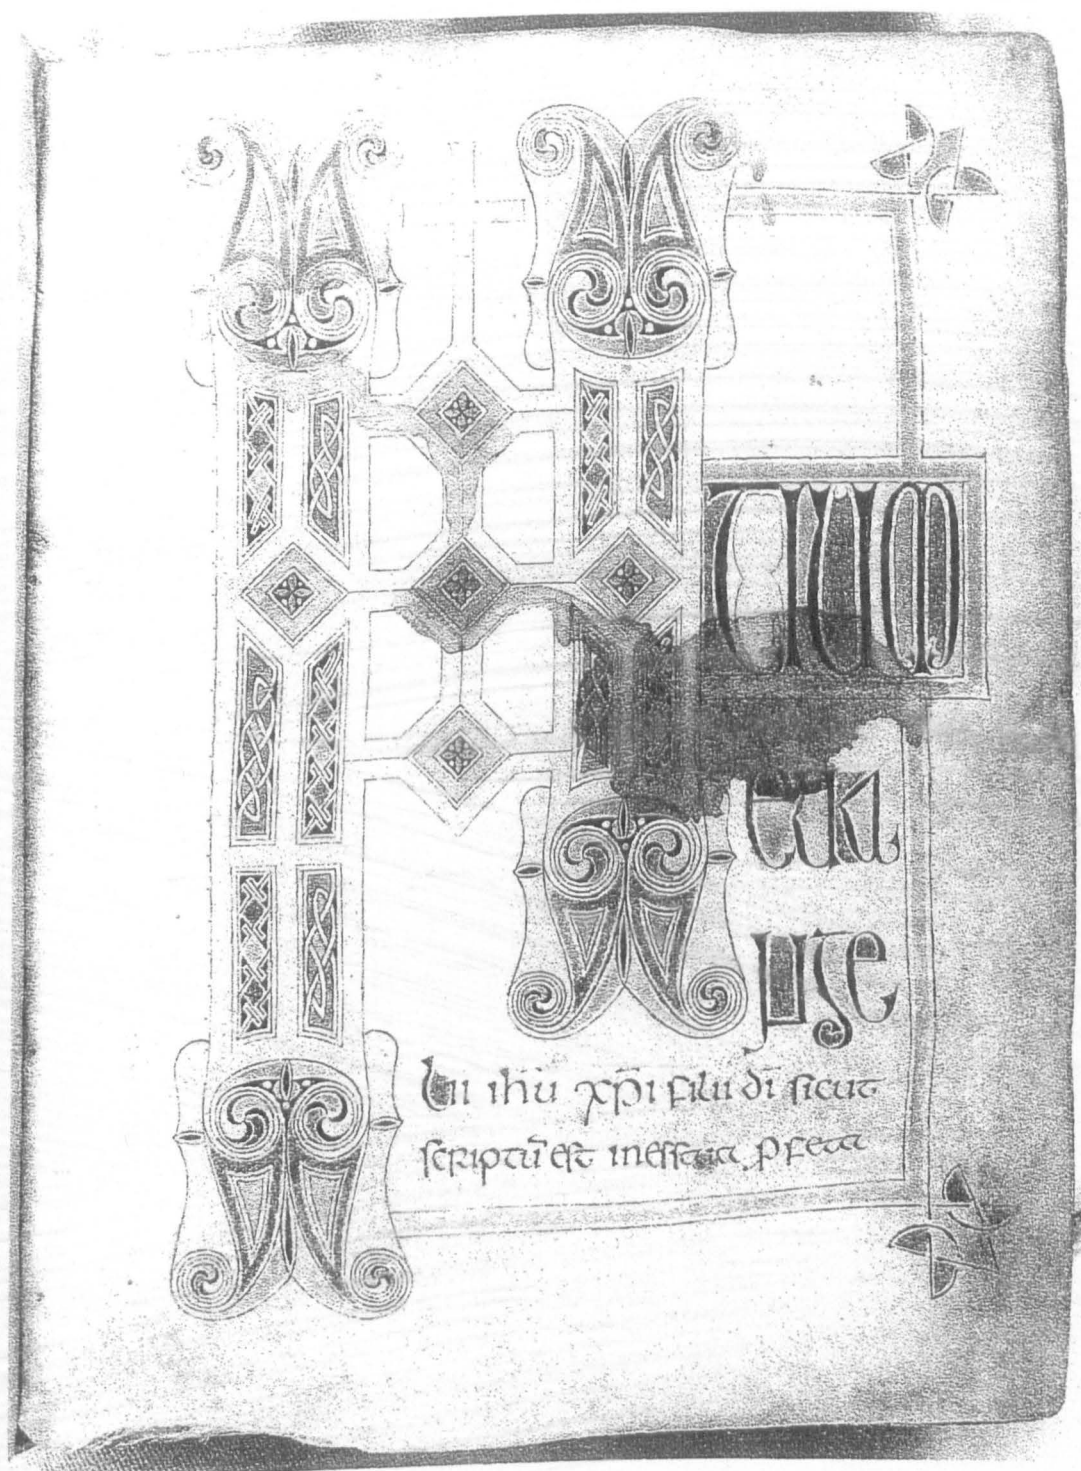 INITIUM
eua
nge
lii ihū xp̄i filii dī sicut
scriptū est inessaia ꝓfeta